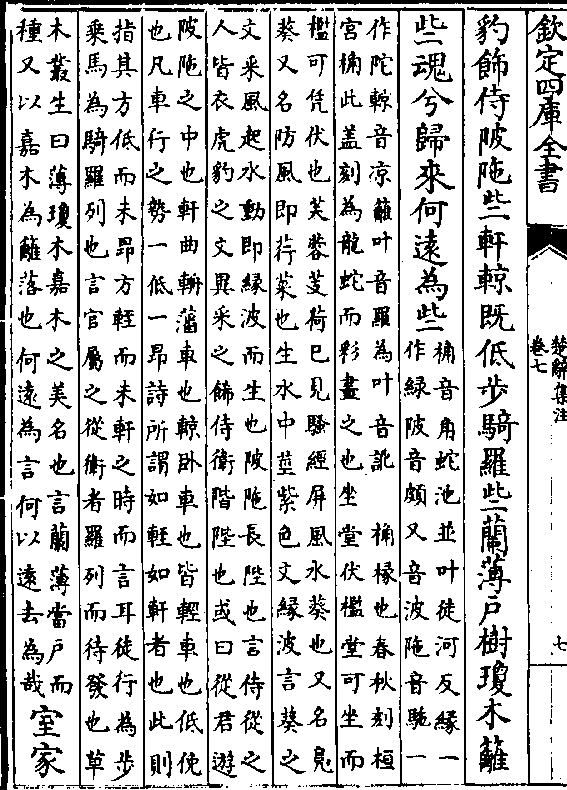 欽定四庫全書
楚辭集注
卷七
七
豹飾侍陂陁些軒輬既低步騎羅些蘭薄戶樹瓊木籬
些魂兮歸來何遠為些
桷音角蛇池並叶徒河反緣一
作緑陂音頗又音波陁音馳一
作陀輬音凉籬叶音羅為叶音訛 桷椽也春秋刻桓
宮桷此盖刻為龍蛇而彩畫之也坐堂伏檻堂可坐而
檻可凭伏也芙蓉芰荷已見騷經屏風水葵也又名鳬
葵又名防風即荇菜也生水中莖紫色文緣波言葵之
文采風起水動即緣波而生也陂陁長陛也言侍從之
人皆衣虎豹之文異采之飾侍衛階陛也或曰從君遊
陂陁之中也軒曲輈藩車也輬卧車也皆輕車也低俛
也凡車行之勢一低一昂詩所謂如輊如軒者也此則
指其方低而未昂方輊而未軒之時而言耳徒行為步
乘馬為騎羅列也言官屬之從衛者羅列而待發也草
木叢生曰薄瓊木嘉木之美名也言蘭薄當戶而
種又以嘉木為籬落也何遠為言何以遠去為哉
室家